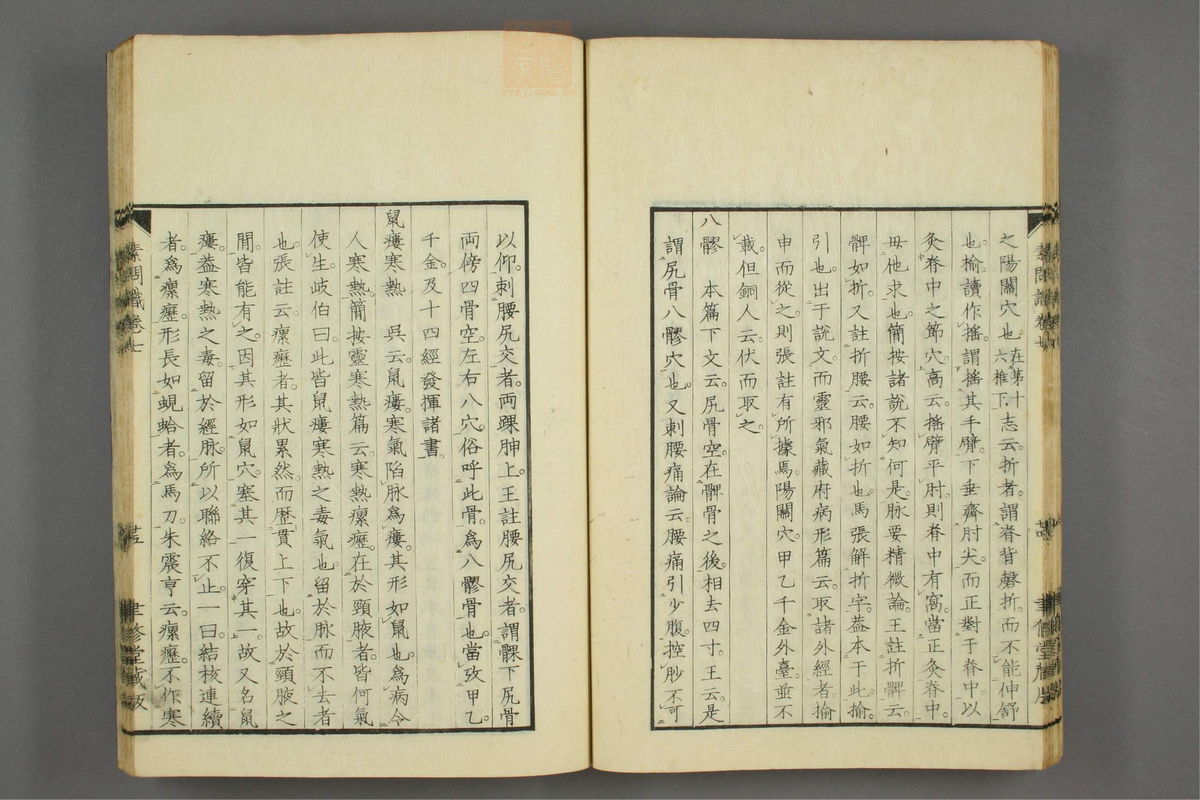 之陽關穴也在第十六椎下志云折者謂脊背磬折而不能伸舒
也揄讀作搖謂搖其手臂下垂齊肘尖而正對于脊中以
灸脊中之節穴高云搖臂平肘則脊中有窩當正灸脊中
毋他求也簡按諸說不知何是脉要精微論王註折髀云
髀如折又註折腰云腰如折也馬張解折字葢本于此揄
引也出于說文而靈邪氣藏府病形篇云取諸外經者揄
申而從之則張註有所據焉陽關穴甲乙千金外臺並不
載但銅人云伏而取之
八髎 本篇下文云尻骨空在髀骨之後相去四寸王云是
謂尻骨八髎穴也又刺腰痛論云腰痛引少腹控䏚不可
以仰刺腰尻交者兩髁胂上王註腰尻交者謂髁下尻骨
兩傍四骨空左右八穴俗呼此骨爲八髎骨也當攷甲乙
千金及十四經發揮諸書
鼠瘻寒熱 吳云鼠瘻寒氣陷脉爲瘻其形如鼠也爲病令
人寒熱簡按靈寒熱篇云寒熱瘰癧在於頸腋者皆何氣
使生岐伯曰此皆鼠瘻寒熱之毒氣也留於脉而不去者
也張註云瘰癧者其狀累然而歷貫上下也故於頸腋之
間皆能有之因其形如鼠穴塞其一復穿其一故又名鼠
瘻葢寒熱之毒留於經脉所以聯絡不止一曰結核連續
者爲瘰癧形長如蜆蛤者爲馬刀朱震亨云瘰癧不作寒
素問識卷七
聿修堂藏版